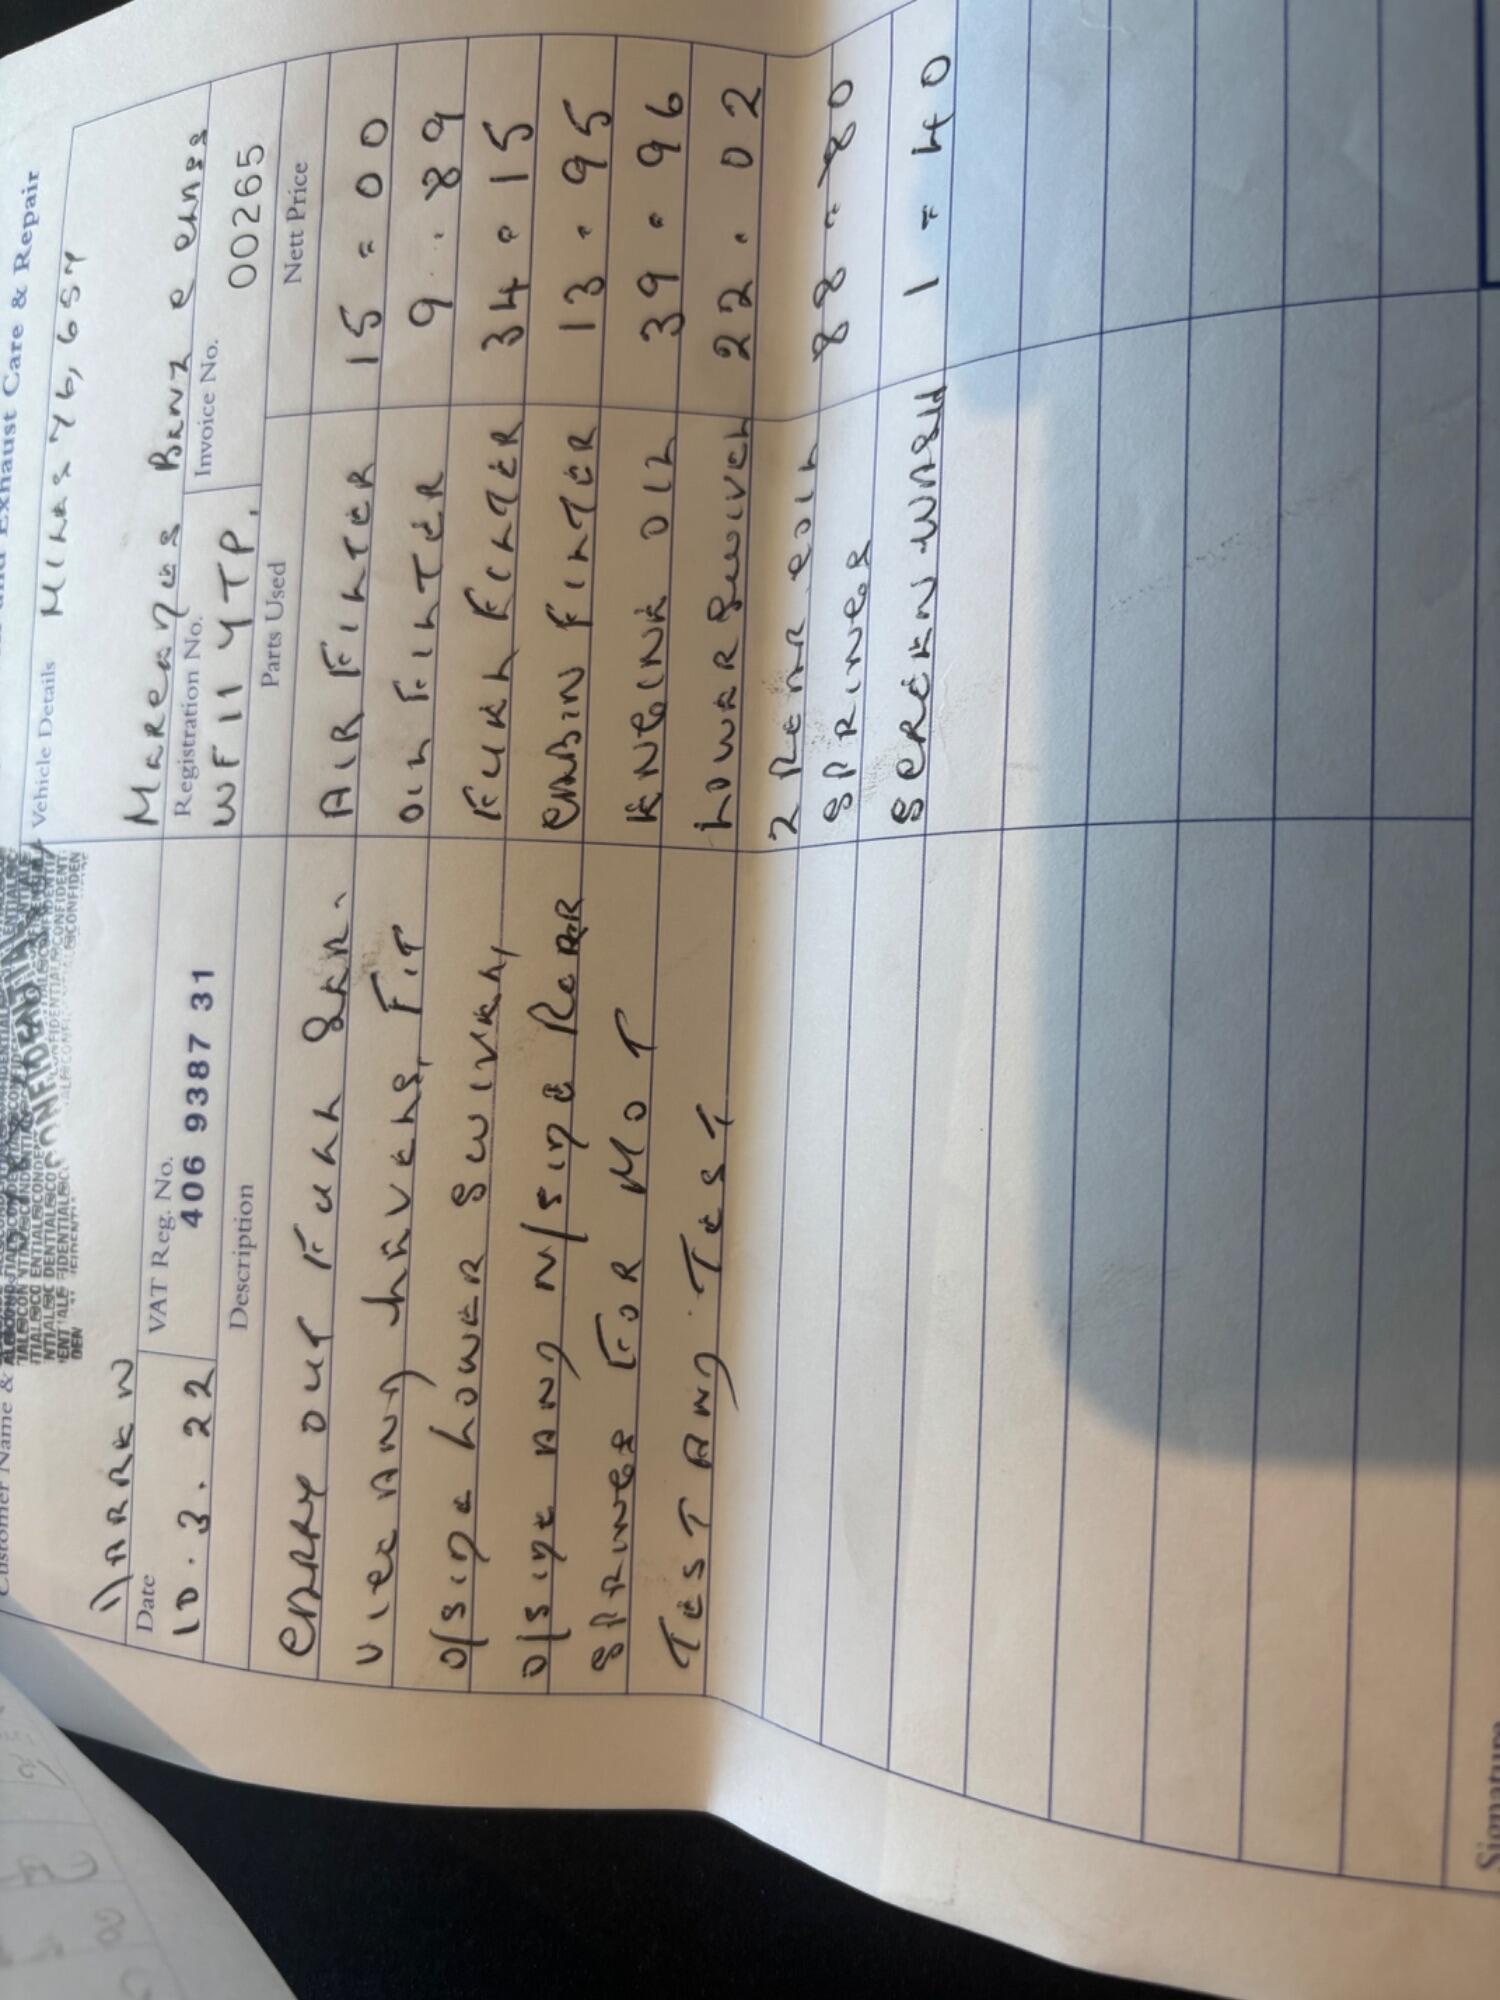 and Exhaust Care & Repair
Customer Name &
CONFIDENTIAL
Vehicle Details MILES 76,657
DARREN
MERCEDES BENZ C CLASS
Date
10.3.22
VAT Reg. No.
406 9387 31
Registration No.
WF11 YTP.
Invoice No.
00265
Description
Parts Used
Nett Price
CARRY OUT FULL SER-
VICE AND LEVELS, FIT
O/SIDE LOWER SWIVEL,
O/SIDE AND N/SIDE REAR
SPRINGS FOR MOT
TEST AND TEST
AIR FILTER 15=00
OIL FILTER 9.89
FUEL FILTER 34.15
CABIN FILTER 13.95
ENGINE OIL 39.96
LOWER SWIVEL 22.02
2 REAR COIL
SPRINGS 88=80
SCREEN WASH 1=40
Signature